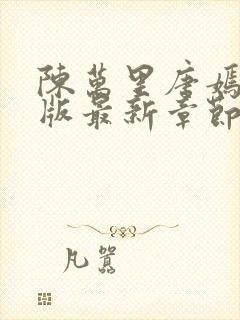 陳萬里唐嫣
版最新章節
凡囂